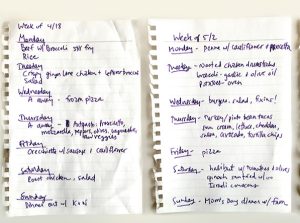 Week of 4/18
Monday
Beef w/ Broccoli stir fry
Rice
Tuesday
Crispy ginger lime chicken +
Wednesday
A away - frozen pizza
Thursday
A away - Antipasti: prosciutto,
mozzarella, peppers, olives,
Raw veggies
Friday
Orecchiette w/ sausage + cauliflower
Saturday
Roast chicken, salad
Sunday
Dinner out w/ kids
Week of 5/2
Monday - Penne w/ cauliflower +
Tuesday - roasted chicken drumsticks
broccoli - garlic + olive oil
potatoes - oven
Wednesday - burgers, salad, fixins!
Thursday - Turkey/pinto bean tacos
sour cream, lettuce, cheddar,
salsa, avocado, tortilla chips
Friday - pizza
Saturday - halibut w/ tomatoes + olives
Israeli couscous
Sunday - Mom's Day dinner w/